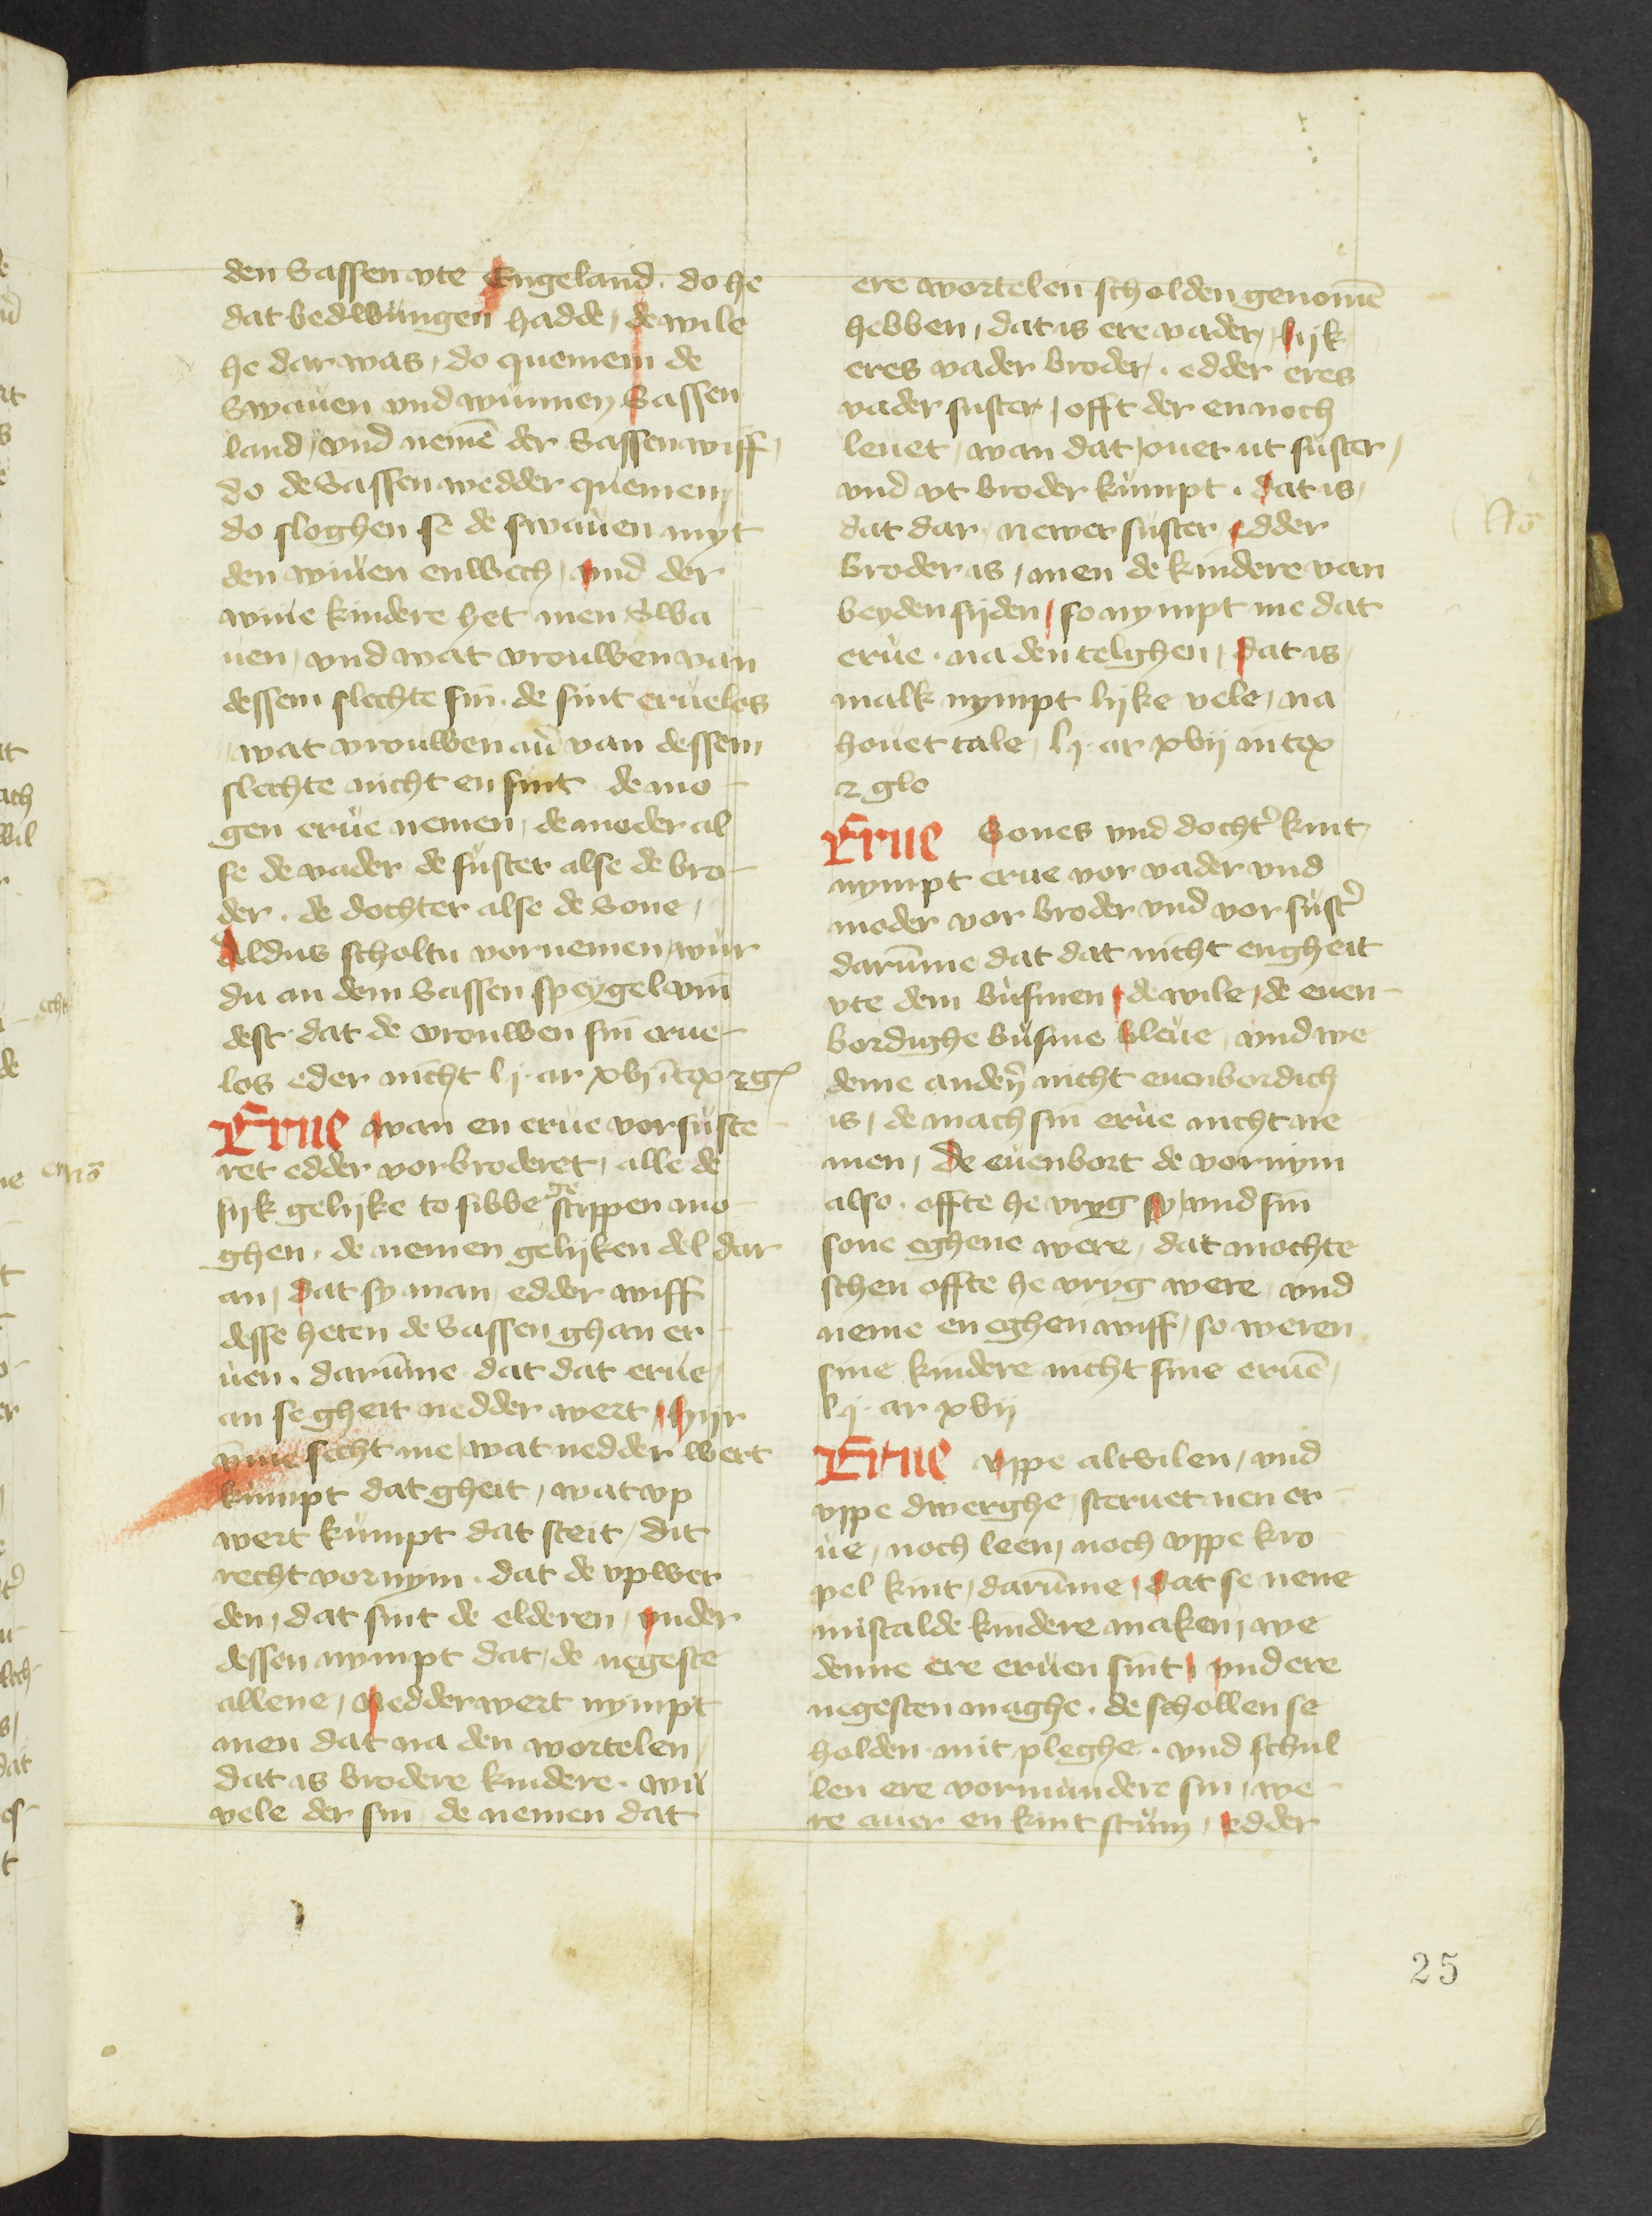 den Sassen vte Engeland. do he
dat bedwungen hadde, de wile
he dar was, do quemem de
Swauen vnd wunnen Sassen
land, vnd nemē der Sassen wiff,
do de Sassen wedder quemen,
do sloghen se de swauen myt
den wiuen enwech, vnd der
wiue kindere het men Swa
uen, vnd wat vrouwen van
dessem slechte sin. de sint erueloes
wat vrouwen auͦ van dessem
slechte nicht en sint de mo-
gen erue nemen, de moder al
se de vader de suster alse de bro-
der. de dochter alse de Sone,
Aldus scholtu vornemen, wur
du an dem Sassen speygel vin
dest dat de vrouwen sin erue-
los eder nicht lj. ar xvj ītex 2 gl
Erue wan en erue vorsuste-
ret edder vorbroderet, alle de
sijk gelijke to sibbe gestippen mo
ghen. de nemen gelijken del dar
an, dat sy man edder wiff
desse heten de Sassen ghan er-
uen. darūme dat dat erue,
an se gheit nedder wert, hijr
vme secht me, wat nedder wert
kumpt dat gheit, wat vp
wert kumpt dat steit, dit
recht vornym. dat de vpwer
den, dat sint de elderen, vnder
dessen nympt dat, de negeste
allene, nedderwert nympt
men dat na den wortelen,
dat is brodere kindere. wu
vele der sin de nemen dat
ere wortelen scholden genomē
hebben, dat is ere vader, lijk
eres vader broder. edder eres
vader suster, offt der en noch
leuet, wan dat ouer ut suster,
vnd vt broder kumpt. dat is,
dat dar newer suster edder
broder is, men de kindere van
beyden sijden, so nympt me dat
erue. na den telghen, dat is
malk nympt lijke vele, na
houet tale, lj. ar xvij in tex
2 glo
Erue Sones vnd docht᷑ kint,
nympt erue vor vader vnd
moder vor broder vnd vor sust᷑
darūme dat dat nicht engheit
vte dem busmen, de wile, de euen-
bordighe busme bleue, vnd we
deme andeꝝ nicht euenbordich
is, de mach sin erue nicht ne
men, De euenbort de vornym
also. offte he vryg sy, vnd sin
sone eghene were, dat mochte
schen offte he vryg were, vnd
neme en eghen wiff, so weren
sine kindere nicht sine eruē,
lj. ar xvij
Erue vppe altvilen, vnd
vppe dwerghe steruet nen er-
ue, noch leen, noch vppe kro
pel kint, darūme, dat se nene
mistalde kindere maken, we
denne ere eruen sint, vnd ere
negesten maghe. de schollen se
holden mit pleghe. vnd schul
len ere vormundere sin, we-
re auer en kint stum, edder
25